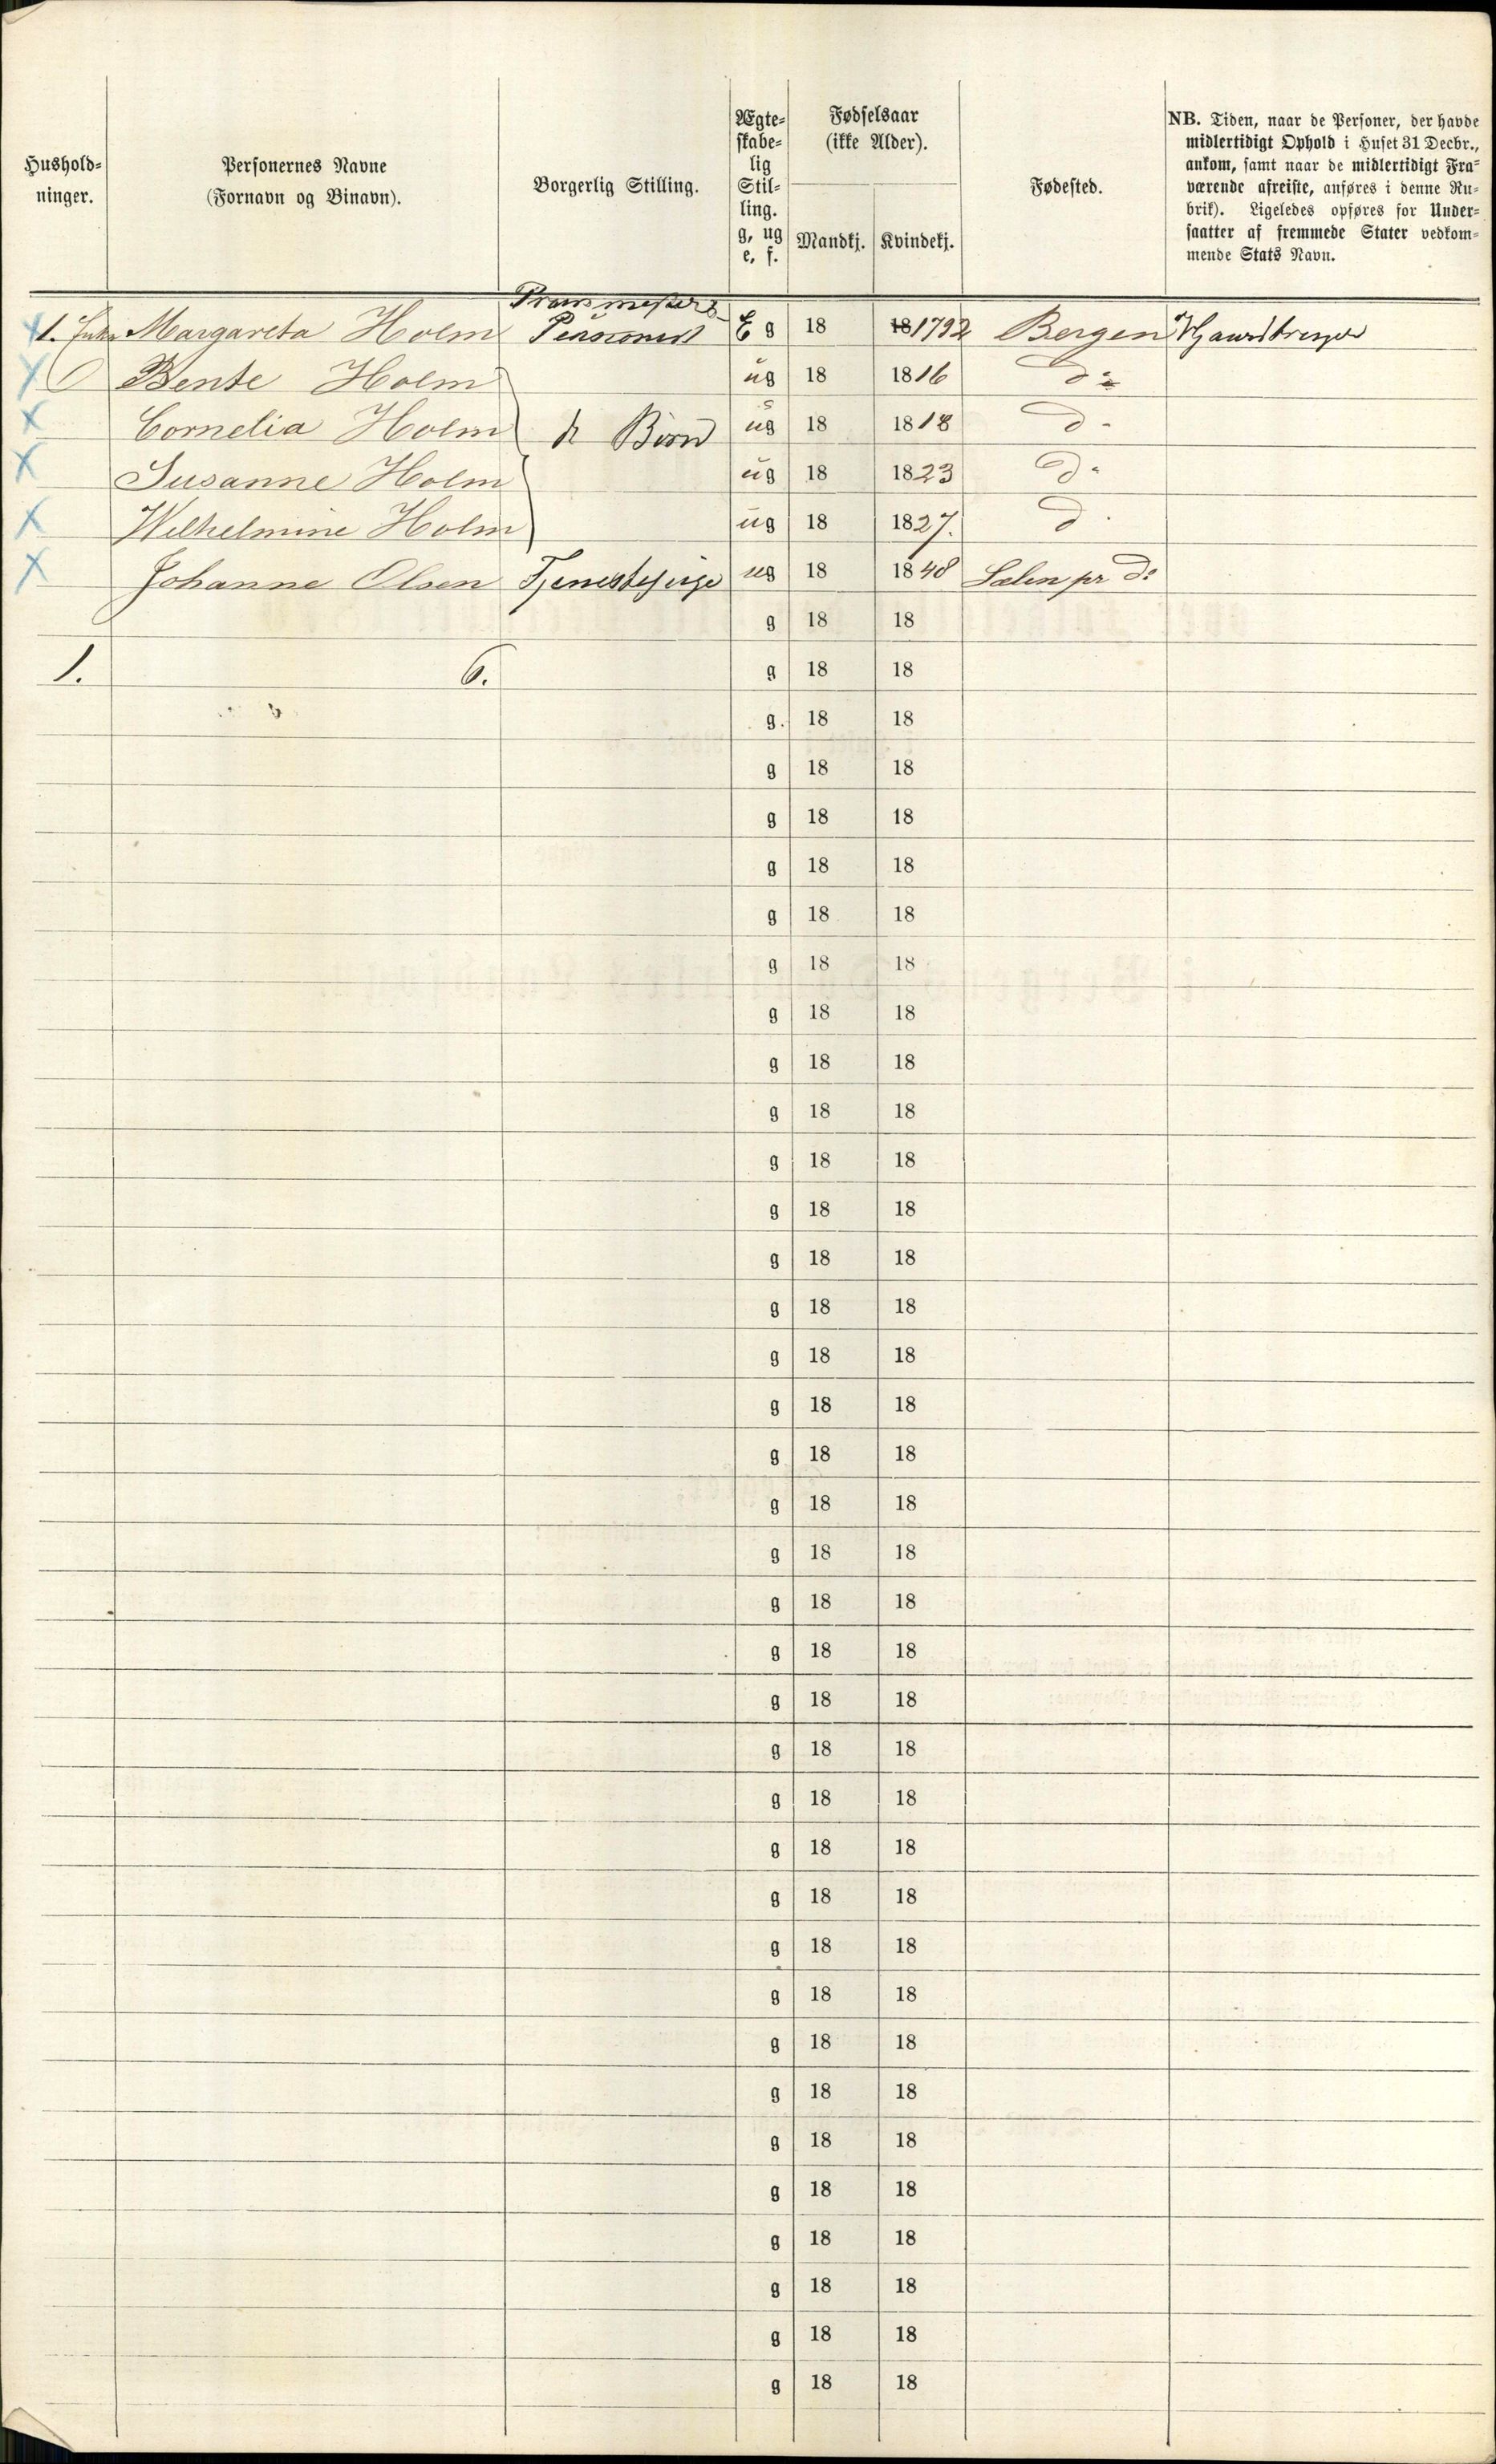 Hushold-
ninger.
Personernes Navne
(Fornavn og Binavn).
Borgerlig Stilling.
Ægte-
skabe-
lig
Stil-
ling.
g, ug
e, f.
Fødselsaar
(ikke Alder).
Mandkj. Kvindekj.
Fødested.
NB. Tiden, naar de Personer, der havde
midlertidigt Ophold i Huset 31 Decbr.,
ankom, samt naar de midlertidigt Fra-
værende afreiste, anføres i denne Ru-
brik). Ligeledes opføres for Under-
saatter af fremmede Stater vedkom-
mende Stats Navn.
1. Margareta Holm Pensionist E g 18 18 1792 Bergen
Bente Holm ug 18 1816 do
Cornelia Holm Børn ug 18 1818 do
Susanne Holm ug 18 1823 do
Wilhelmine Holm ug 18 1827. do
Johanne Olsen Tjenestepige ug 18 1848 Sælen pr do
g 18 18
1. 6. g 18 18
g 18 18
g 18 18
g 18 18
g 18 18
g 18 18
g 18 18
g 18 18
g 18 18
g 18 18
g 18 18
g 18 18
g 18 18
g 18 18
g 18 18
g 18 18
g 18 18
g 18 18
g 18 18
g 18 18
g 18 18
g 18 18
g 18 18
g 18 18
g 18 18
g 18 18
g 18 18
g 18 18
g 18 18
g 18 18
g 18 18
g 18 18
g 18 18
g 18 18
g 18 18
g 18 18